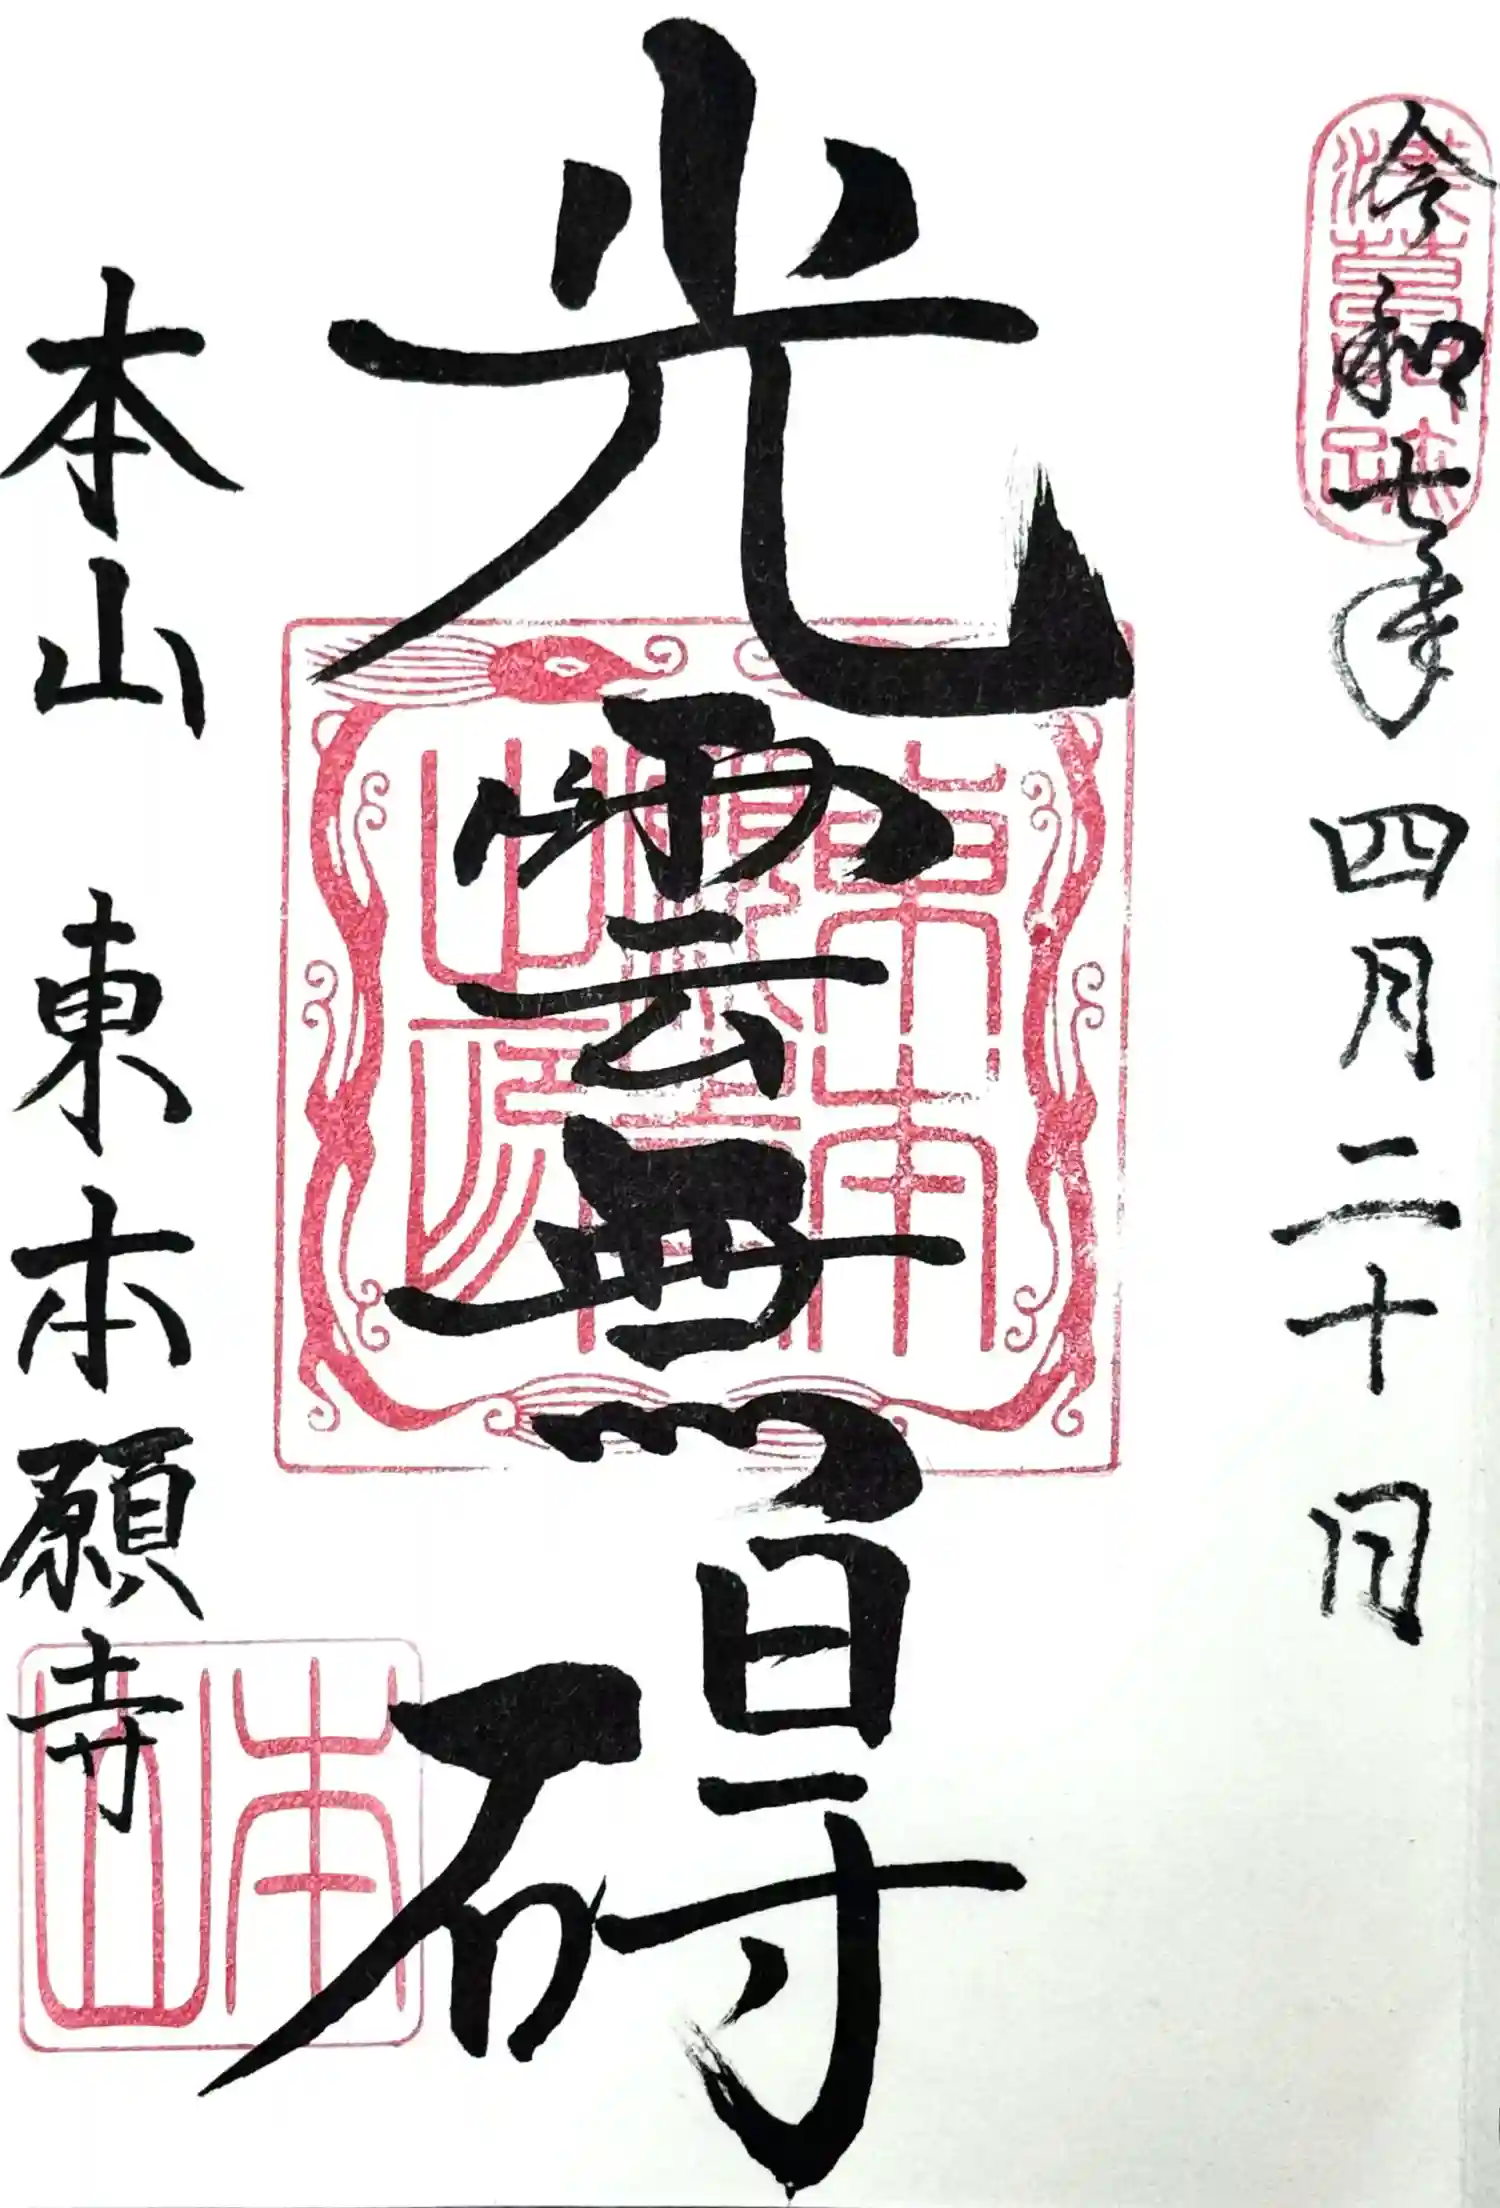 令和七年四月二十日
光雲無碍
本山 東本願寺
本山